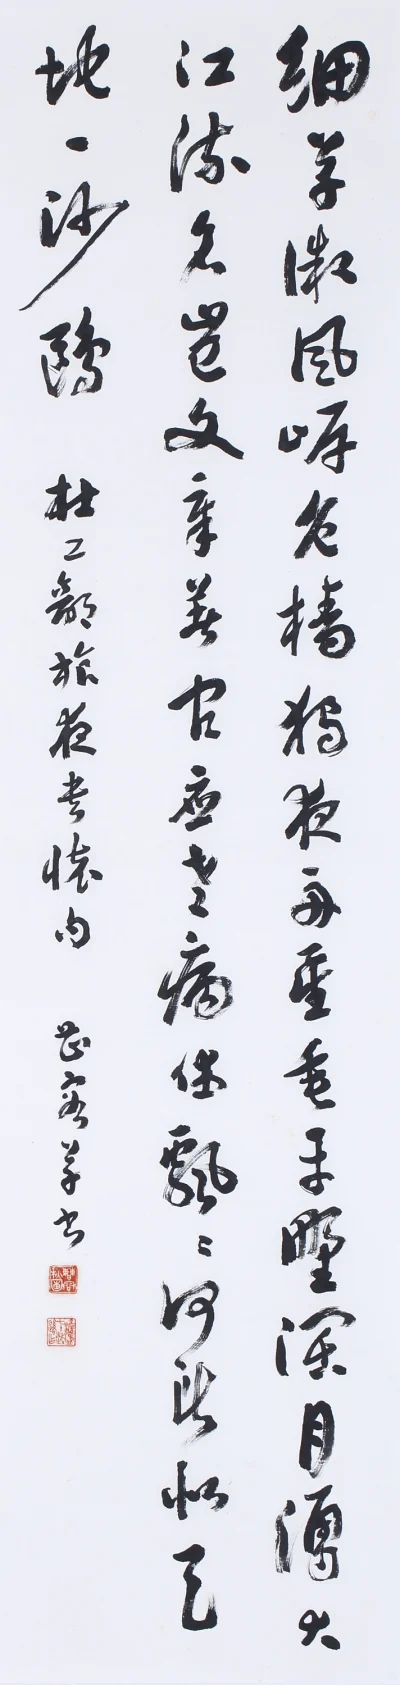 細草微風岸危檣獨夜舟星垂平野闊月湧大
江流名豈文章著官應老病休飄〻何所似天
地一沙鷗
杜工部旅夜書懷句
草书